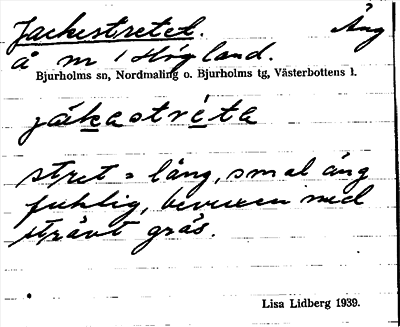 Jackestretet. Ång
å m / Högland.
Bjurholms sn, Nordmaling o. Bjurholms tg, Västerbottens l.
jákastréta
stret = lång, smal äng
fuktig, bevuxen med
strävt gräs.
Lisa Lidberg 1939.